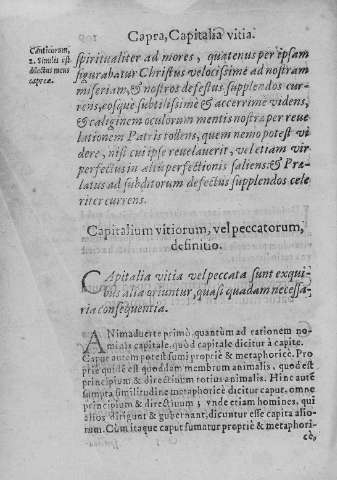 Capra, Capitalia vitia.
Canticorum,
2. Similis est
dilectus meus
capreæ.
spiritualiter ad mores, quatenus per ipsam
figurabatur Christus velocissimè ad nostram
miseriam, & nostros defectus supplendos cur-
rens, eosque subtilissimè & accerrimè videns,
& caliginem oculorum mentis nostræ per reue
lationem Patris tollens, quem nemo potest vi
dere, nisi cui ipse reuelauerit, vel etiam vir
perfectus in altū perfectionis saliens: & Præ-
latus ad subditorum defectus supplendos cele
riter currens.
Capitalium vitiorum, vel peccatorum,
definitio.
CApitalia vitia vel peccata sunt ex qui-
bus alia oriuntur, quasi quadam necessa-
ria consequentia.
ANimaduerte primò, quantùm ad rationem no-
minis capitale, quòd capitale dicitur à capite.
Caput autem potest sumi propriè & metaphoricè. Pro
priè quidē est quoddam membrum animalis, quod est
principium & directiuum totius animalis. Hinc autē
sumpta similitudine metaphoricè dicitur caput, omne
principium & directiuum; vnde etiam homines, qui
alios dirigunt & gubernant, dicuntur esse capita alio-
rum. Cùm itaque caput sumatur propriè & metaphori-
cè,